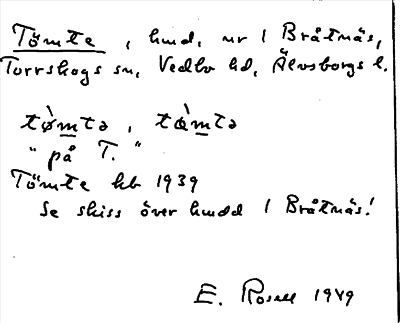 Tömte, hmd, nr 1 Bråtnäs,
Torrskogs sn, Vedbo hd, Älvsborgs l.
tø̀m̲tə, tæ̀m̲tə
"på T."
Tömte kb 1939
Se skiss över hmdd 1 Bråtnäs!
E. Rosell 1949